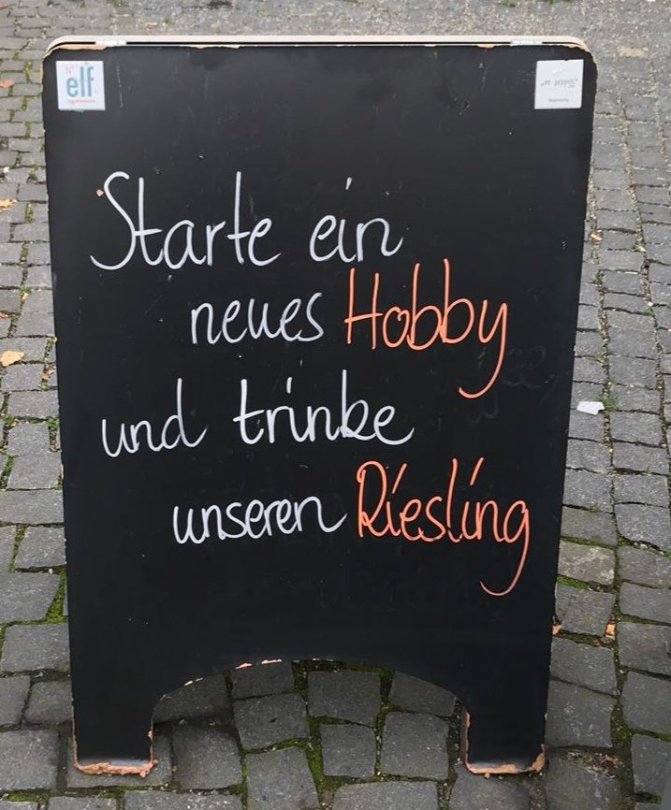 N° elf
Starte ein
neues Hobby
und trinke
unseren Riesling